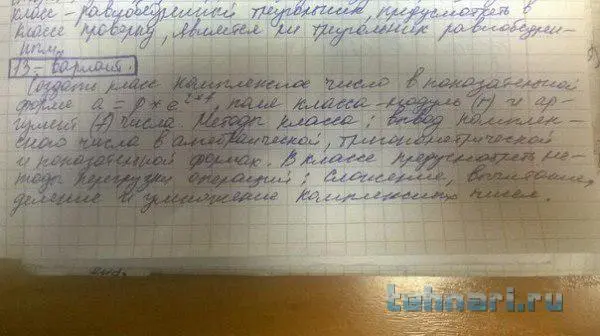 класс - равнобедренный треугольник, предусмотреть в
классе проверку, является ли треугольник равнобедрен-
ным.
13 - вариант.
Создать класс комплексное число в показательной
форме a = p * e^i*f, поля класса - модуль (r) и ар-
гумент (f) числа. Методы класса: вывод комплек-
сного числа в алгебраической, тригонометрической
и показательной формах. В классе предусмотреть ме-
тоды перегрузки операций: сложение, вычитание,
деление и умножение комплексных чисел.
tehnari.ru